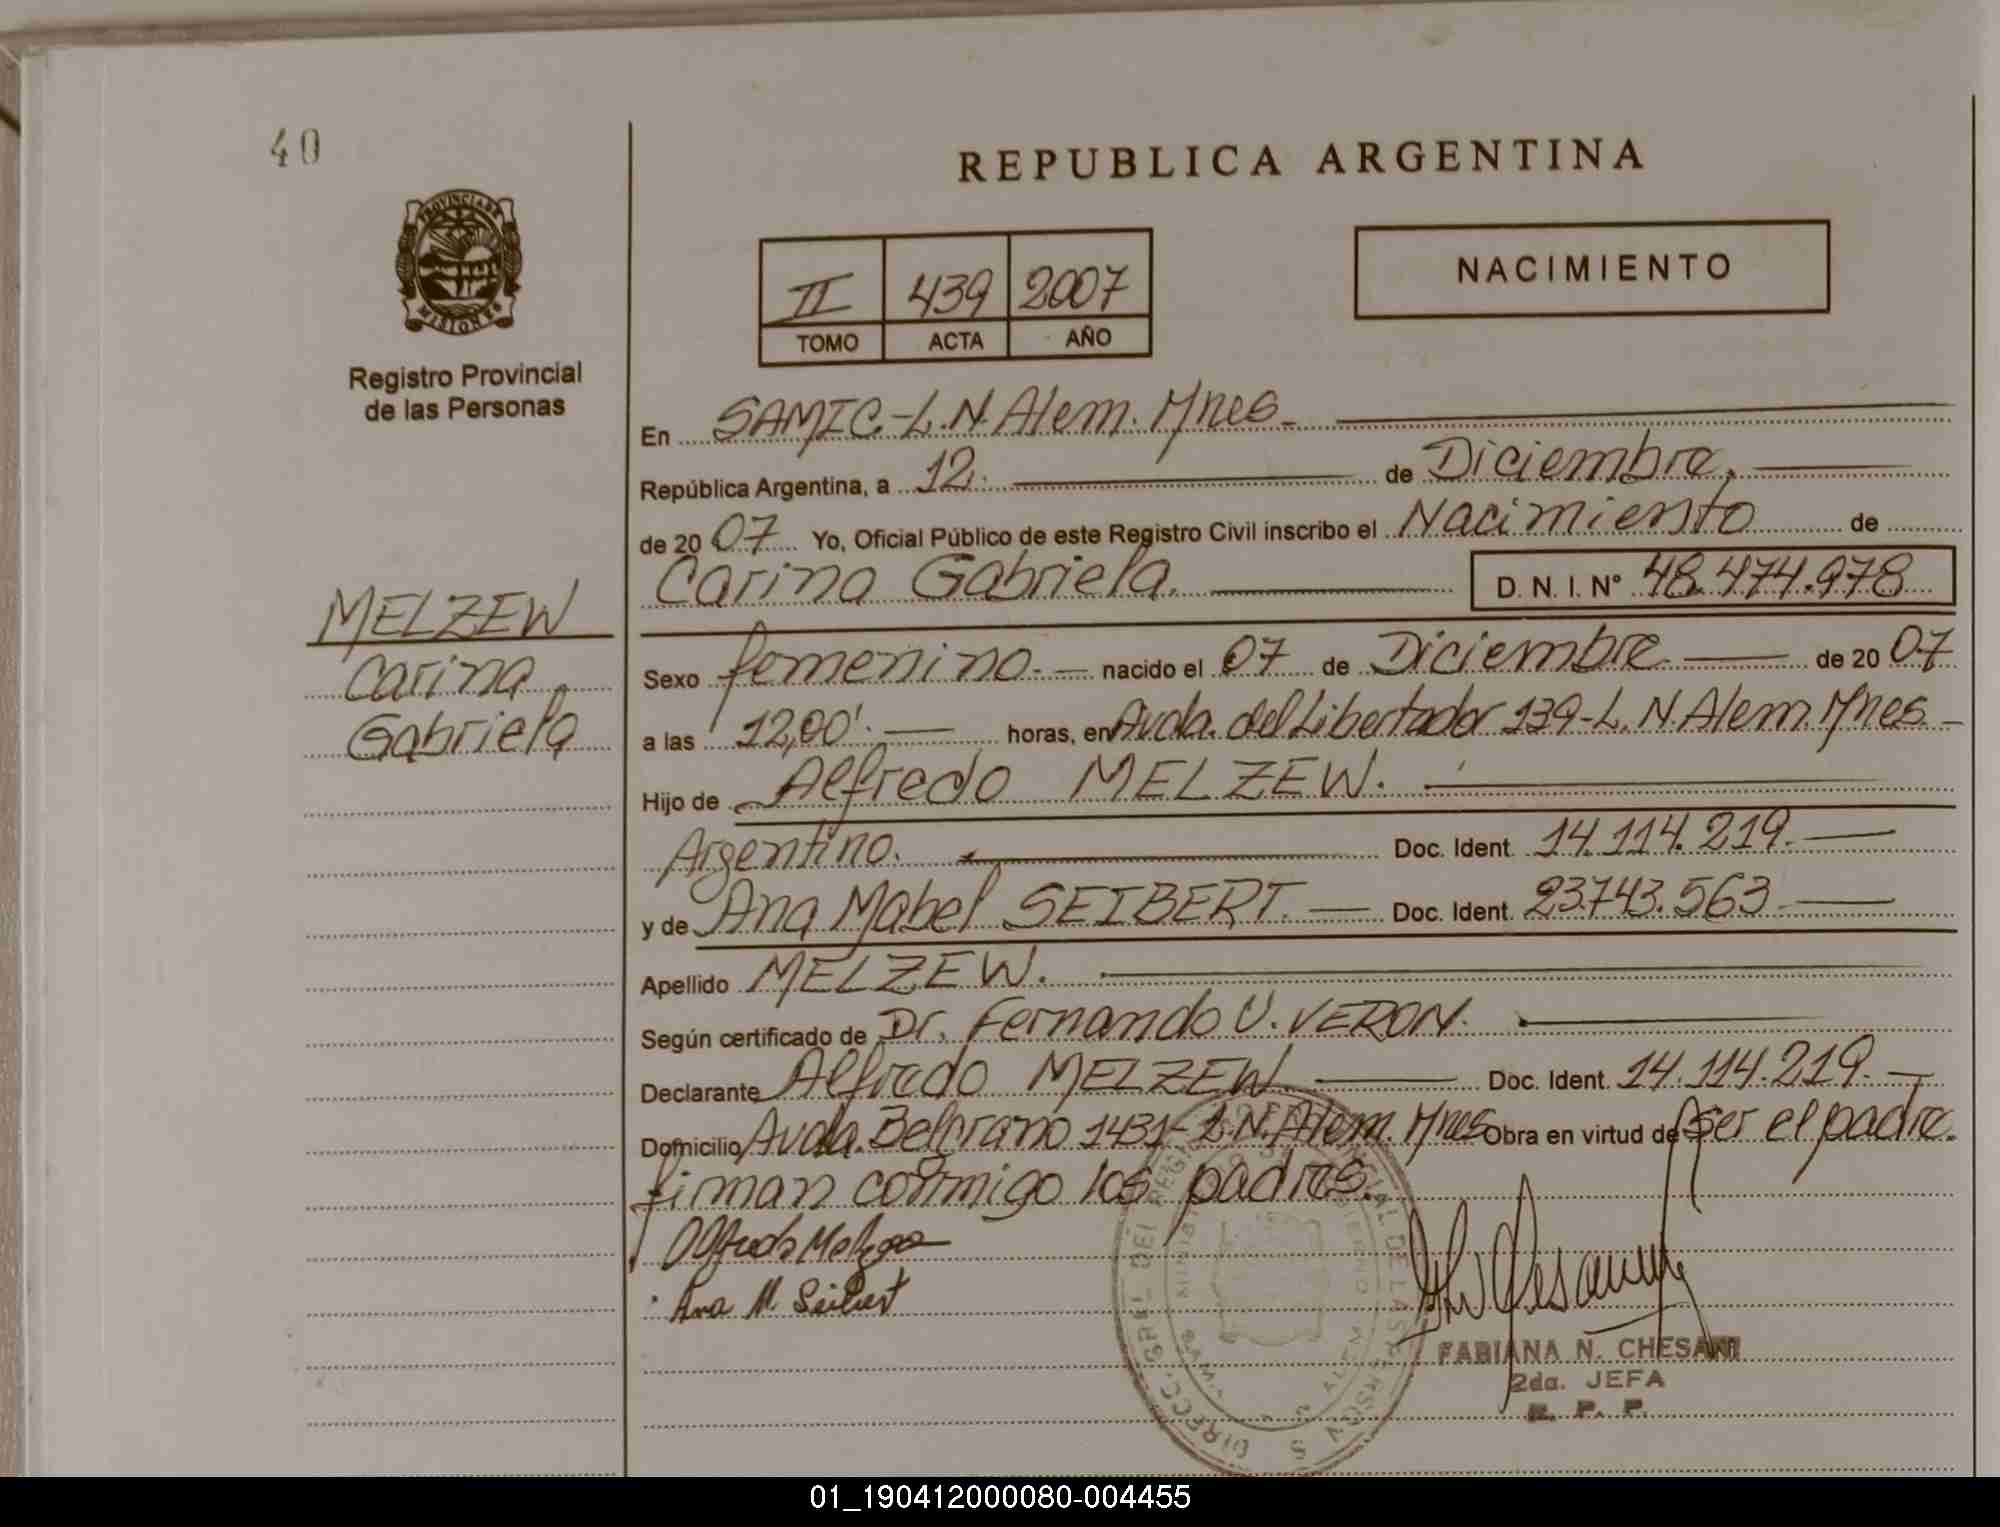 40
PROVINCIA DE
MISIONES
Registro Provincial
de las Personas
REPUBLICA ARGENTINA
II 439 2007
TOMO ACTA AÑO
NACIMIENTO
En SAMIC.-L.N.Alem.Mnes.-
República Argentina, a 12. de Diciembre.
de 20 07 Yo, Oficial Público de este Registro Civil inscribo el Nacimiento de
Carina Gabriela. D. N. I. N° 48.474.978
MELZEW
Carina
Gabriela
Sexo femenino.- nacido el 07 de Diciembre de 20 07
a las 12,00'. horas, en Avda. del Libertador 139-L.N.Alem.Mnes.-
Hijo de Alfredo MELZEW.
Argentino. Doc. Ident. 14.114.219.
y de Ana Mabel SEIBERT. Doc. Ident. 23.743.563
Apellido MELZEW.
Según certificado de Dr. Fernando U. VERON.
Declarante Alfredo MELZEW Doc. Ident. 14.114.219.
Domicilio Avda. Belgrano 1431-L.N.Alem.Mnes Obra en virtud de ser el padre.
firman conmigo los padres.
Alfredo Melzew
Ana M. Seibert
FABIANA N. CHESANI
2da. JEFA
R. P. P.
01_190412000080-004455